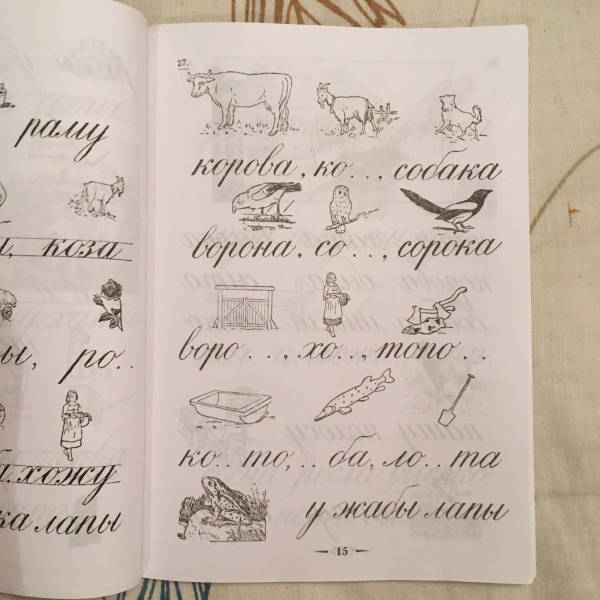 раму
коза
ы, ро..
хожу
ка лапы
27.
корова, ко.., собака
ворона, со.., сорока
воро.., хо.., топо..
ко..то, ..ба, ло..та
у жабы лапы
15